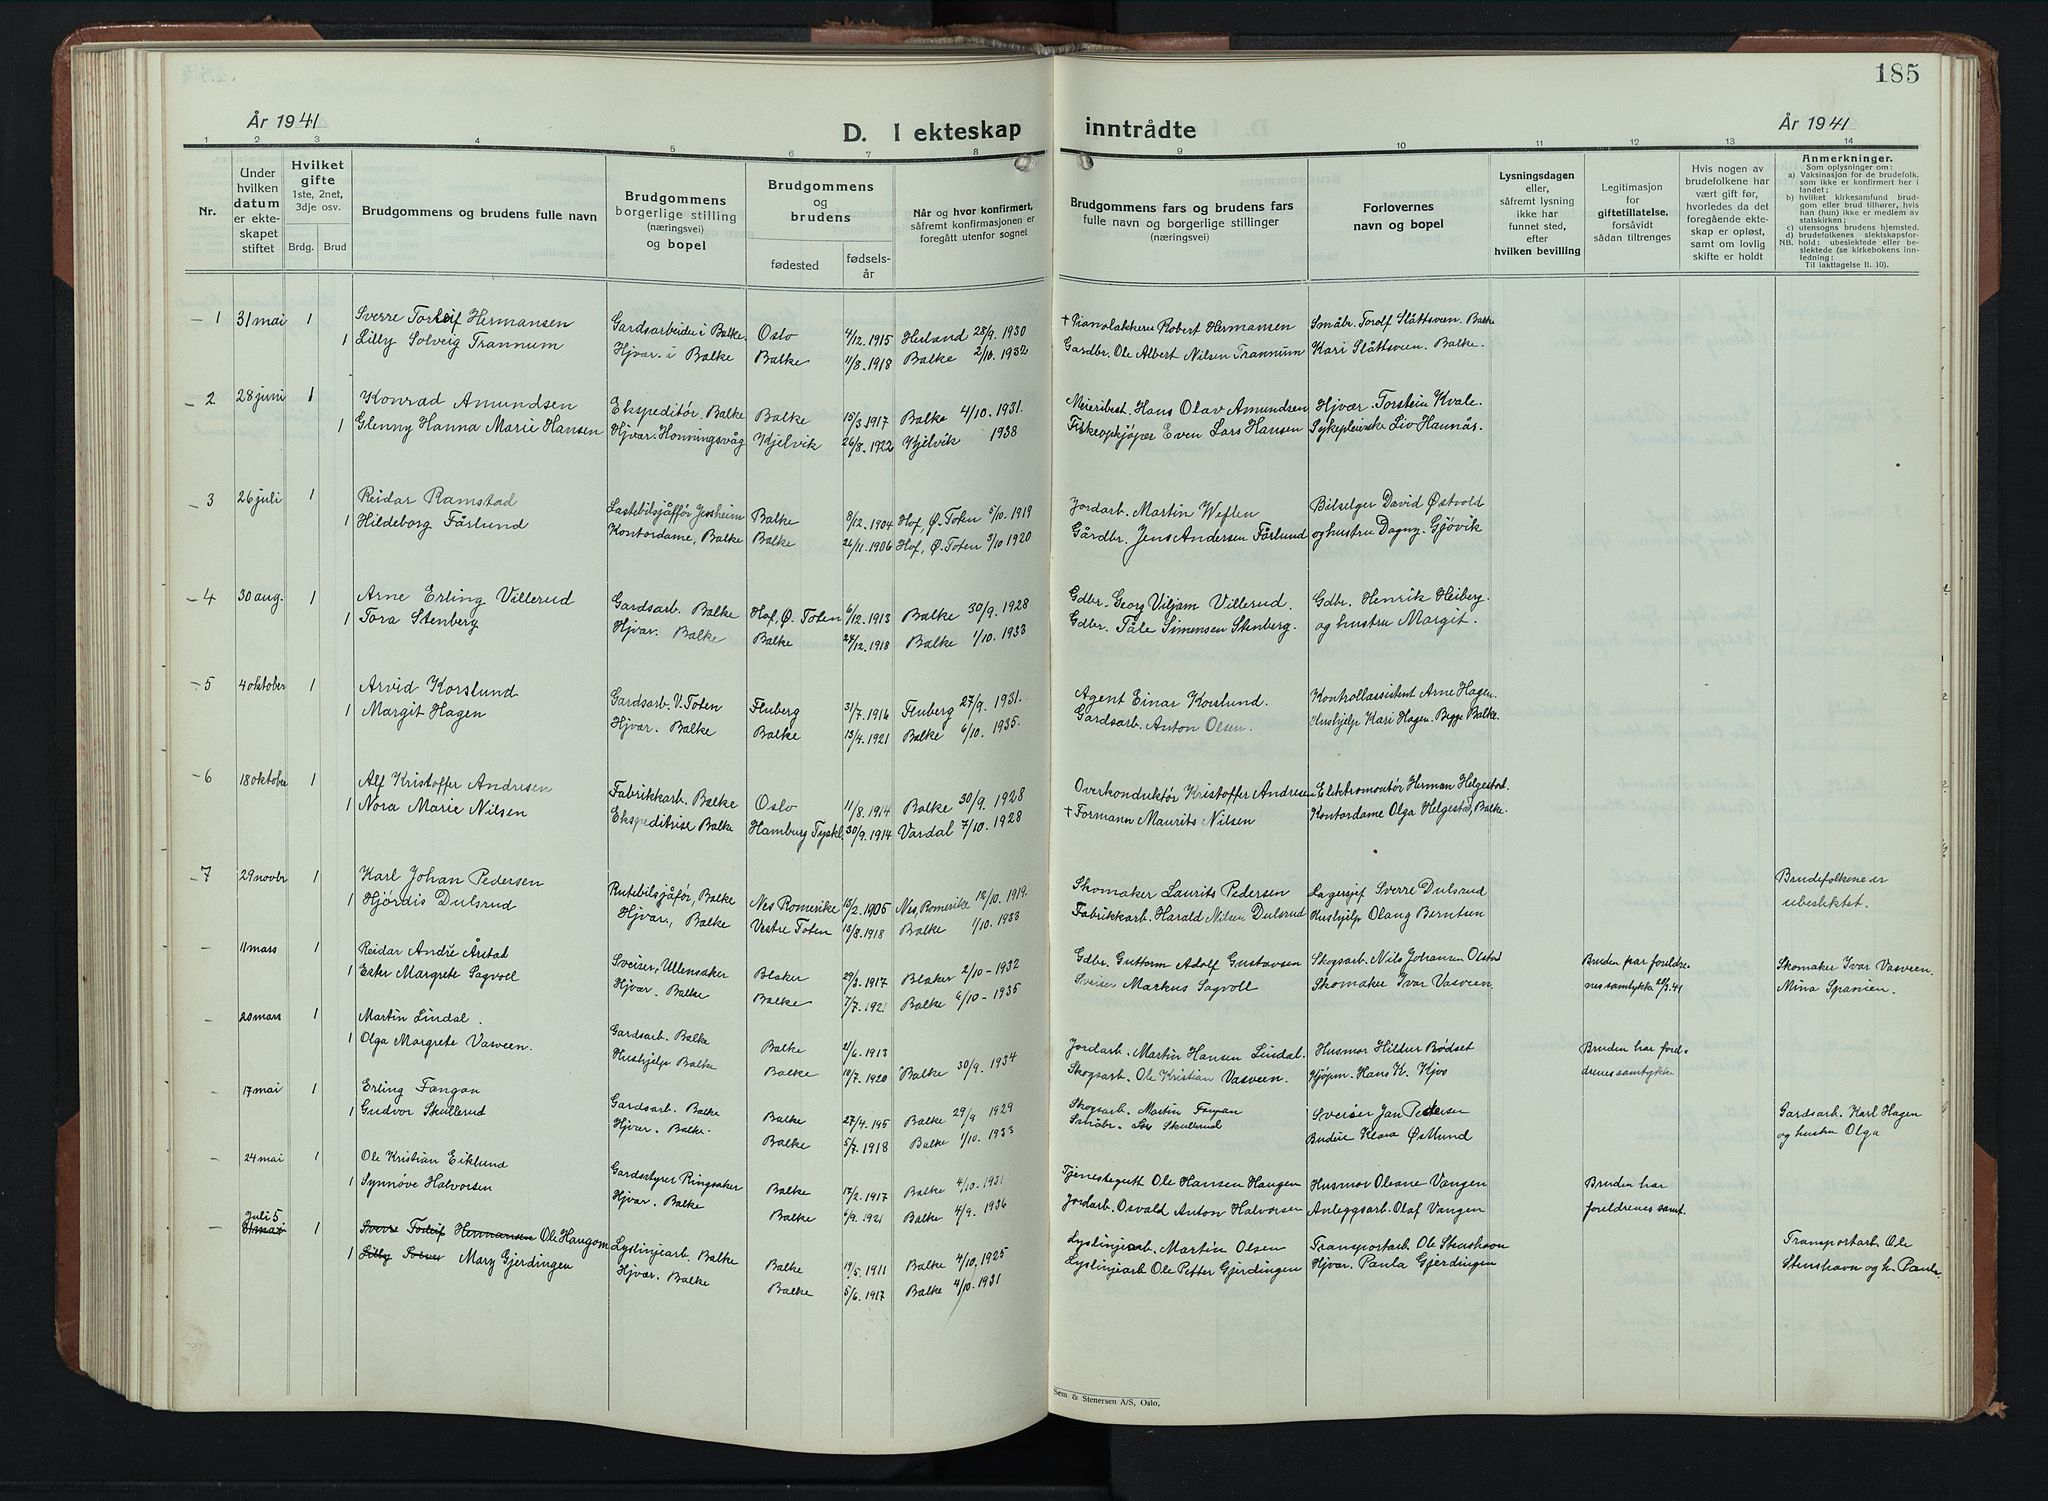 185
År 1941
D. I ekteskap inntrådte
År 1941
1 2 3 4 5 6 7 8 9 10 11 12 13 14
Nr.
Under hvilken datum er ekteskapet stiftet
Hvilket gifte 1ste, 2net, 3dje osv.
Brdg. Brud
Brudgommens og brudens fulle navn
Brudgommens borgerlige stilling (næringsvei) og bopel
Brudgommens og brudens
fødested
fødselsår
Når og hvor konfirmert, såfremt konfirmasjonen er foregått utenfor sognet
Brudgommens fars og brudens fars fulle navn og borgerlige stillinger (næringsvei)
Forlovernes navn og bopel
Lysningsdagen eller, såfremt lysning ikke har funnet sted, efter hvilken bevilling
Legitimasjon for giftetillatelse, forsåvidt sådan tiltrenges
Hvis nogen av brudefolkene har vært gift før, hvorledes da det foregående ekteskap er opløst, samt om lovlig skifte er holdt
Anmerkninger.
Som oplysninger om:
a) Vaksinasjon for de brudefolk, som ikke er konfirmert her i landet;
b) hvilket kirkesamfund brudgom eller brud tilhører, hvis han (hun) ikke er medlem av statskirken;
c) utensogns brudens hjemsted.
d) brudefolkenes slektskapsforhold: ubeslektede eller beslektede (se kirkebokens innledning:
NB.
Til iakttagelse II. 10).
1 31 mai 1 Sverre Torleif Hermansen Gardsarbeider i Balke. Oslo 4/12. 1915 Herland 28/9. 1930 + Pianolakkerer Robert Hermansen Småbr. Torolf Slåttsveen. Balke
1 Lilly Solveig Trannum Hjvar. i Balke Balke 11/8. 1918 Balke 2/10. 1932 Gardbr. Ole Albert Nilsen Trannum Kari Slåttsveen. Balke.
2 28 juni 1 Konrad Amundsen Ekspeditør. Balke Balke 15/3. 1917 Balke 4/10. 1931. Meieribest. Hans Olav Amundsen Hjvær. Torstein Kvale.
1 Glenny Hanna Marie Hansen Hjvær. Honningsvåg Kjelvik 26/8. 1922 Kjelvik 1938 Fiskeopkjøper Even Lars Hansen Sykepleierske Liv Haunås.
3 26 juli 1 Reidar Ramstad Lastebilsjåfför Jessheim Balke 8/12. 1904 Hof, Ø. Toten 5/10. 1919 Jordarb. Martin Weflen Bilselger David Østvold
1 Hildeborg Fårlund Kontordame, Balke Balke 26/11. 1906 Hof, Ø. Toten 3/10 1920 Gårdbr. Jens Andersen Fårlund og hustru Dagny. Gjøvik
4 30 aug. 1 Arne Erling Villerud Gardsarb. Balke Hof, Ø. Toten 6/12. 1913 Balke 30/9. 1928 Gdbr. Georg Viljam Villerud. Gdbr. Henrik Heiberg.
1 Tora Stenberg Hjvar. Balke Balke 24/12. 1918 Balke 1/10. 1933 Gdbr. Tåle Simensen Stenberg. og hustru Margit.
5 4 oktober 1 Arvid Korslund Gardsarb. V. Toten Fluberg 31/7. 1916 Fluberg 27/9. 1931. Agent Einar Korslund. Kontrollassistent Arne Hagen.
1 Margit Hagen Hjvar. Balke Balke 13/4. 1921 Balke 6/10. 1935. Gardsarb. Anton Olsen. Hushjelp Kari Hagen. Begge Balke.
6 18 oktober 1 Alf Kristoffer Andresen Fabrikkarb. Balke Oslo 11/8. 1914 Balke 30/9. 1928 Overkonduktør Kristoffer Andresen Elektromontør Herman Helgestad.
1 Nora Marie Nilsen Ekspeditrise Balke Hamburg Tyskl. 30/9. 1914 Vardal 7/10. 1928 + Formann Maurits Nilsen Kontordame Olga Helgestad, Balke.
7 29 novbr 1 Karl Johan Pedersen Rutebilsjåfør, Balke Nes Romerike 13/2. 1905 Nes, Romerike 12/10. 1919. Skomaker Laurits Pedersen Lagersjef Sverre Dulsrud Brudefolkene er
1 Hjørdis Dulsrud Hjvar., Balke Vestre Toten 13/8. 1918 Balke 1/10. 1933 Fabrikkarb. Harald Nilsen Dulsrud Hushjelp Olaug Berntsen ubesliktet.
11 mars 1 Reidar André Årstad Sveiser, Ullensaker Blaker 29/3. 1917 Blaker 2/10 - 1932 Gdbr. Guttorm Adolf Gustavsen Skogsarb. Nils Johansen Olstad Bruden har foreldre- Skomaker Ivar Vasveen.
1 Ester Margrete Sagvoll Hjvar. Balke Balke 7/7. 1921 Balke 6/10 - 1935 Sveiser Markus Sagvoll Skomaker Ivar Vasveen nes samtykke 20/2.41 Mina Spanien.
20 mars 1 Martin Lindal. Gardsarb. Balke Balke 21/6. 1913 Jordarb. Martin Hansen Lindal. Husmor Hildur Bødset Bruden har forel-
1 Olga Margrete Vasveen. Hushjelp Balke Balke 10/7. 1920 Balke 30/9. 1934 Skogsarb. Ole Kristian Vasveen. Kjøpm. Hans K. Kjos drenes samtykke
17 mai 1 Erling Fangan Gardsarb. Balke Balke 27/4. 195 Balke 29/9 1929 Skogsarb. Martin Sveiser Jan Pedersen Gardsarb. Karl Hagen
1 Gudvor Skullerud Hjvar. Balke. Balke 5/7. 1918 Balke 1/10. 1933 Småbr. Skullerud Budeie Klara Østlund og hustru Olga
24 mai 1 Ole Kristian Eiklund Gardsstyrer Ringsaker Balke 17/2. 1917 Balke 4/10. 1931 Tjenestegutt Ole Hansen Haugen Husmor Olsne Vangen Bruden har
1 Synnøve Halvorsen Hjvar. Balke Balke 6/9. 1921 Balke 4/9. 1936 Jordarb. Osvald Anton Halvorsen Anleggsarb. Olaf Vangen foreldrenes samt.
Juli 5
31 mai 1 Sverre Torleif Hermansen Ole Haugom Lyslinjearb. Balke Balke 19/5. 1911 Balke 4/10. 1925 Lyslinjearb. Martin Olsen Transportarb. Ole Stenshavn Transportarb. Ole
1 Lilly Solvei Mary Gjerdingen Hjvær. Balke Balke 5/6. 1917 Balke 4/10. 1931 Lyslinjearb Ole Petter Gjerdingen Hjvar. Paula Gjerdingen Stenshavn og h. Paula.
Sem & Stenersen A/S, Oslo,